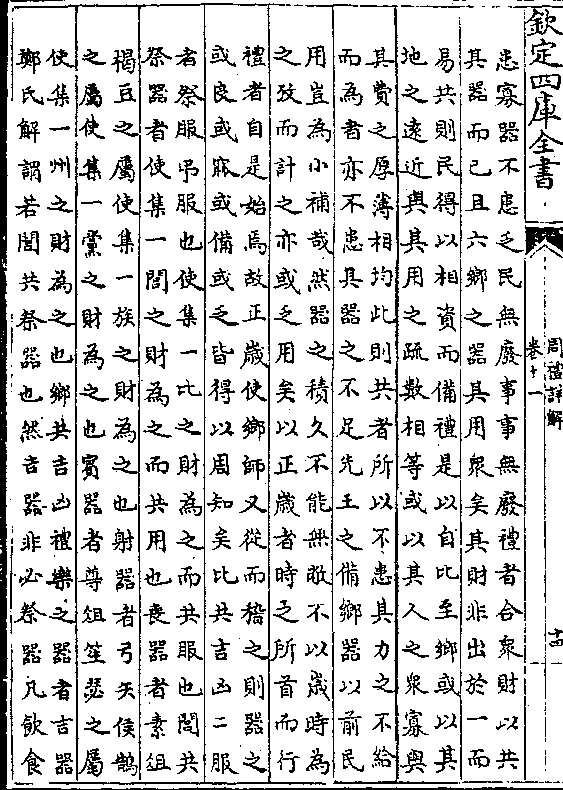 欽定四庫全書
周禮詳解
卷十一
十四
患寡器不患乏民無廢事事無廢禮者合衆財以共
其器而已且六鄉之器其用衆矣其財非出於一而
易共則民得以相資而備禮是以自比至鄉或以其
地之遠近與其用之疏數相等或以其人之衆寡與
其費之厚薄相均此則共者所以不患其力之不給
而為者亦不患具器之不足先王之備鄉器以前民
用豈為小補哉然器之積久不能無敝不以歲時為
之攷而計之亦或乏用矣以正歲者時之所首而行
禮者自是始焉故正歲使鄉師又從而稽之則器之
或良或寐或備或乏皆得以周知矣比共吉凶二服
者祭服弔服也使集一比之財為之而共服也閭共
祭器者使集一閭之財為之而共用也喪器者素俎
楬豆之屬使集一族之財為之也射器者弓矢侯鵠
之屬使集一黨之財為之也賓器者尊俎笙瑟之屬
使集一州之財為之也鄉共吉凶禮樂之器者吉器
鄭氏解謂若閭共祭器也然吉器非必祭器凡飲食